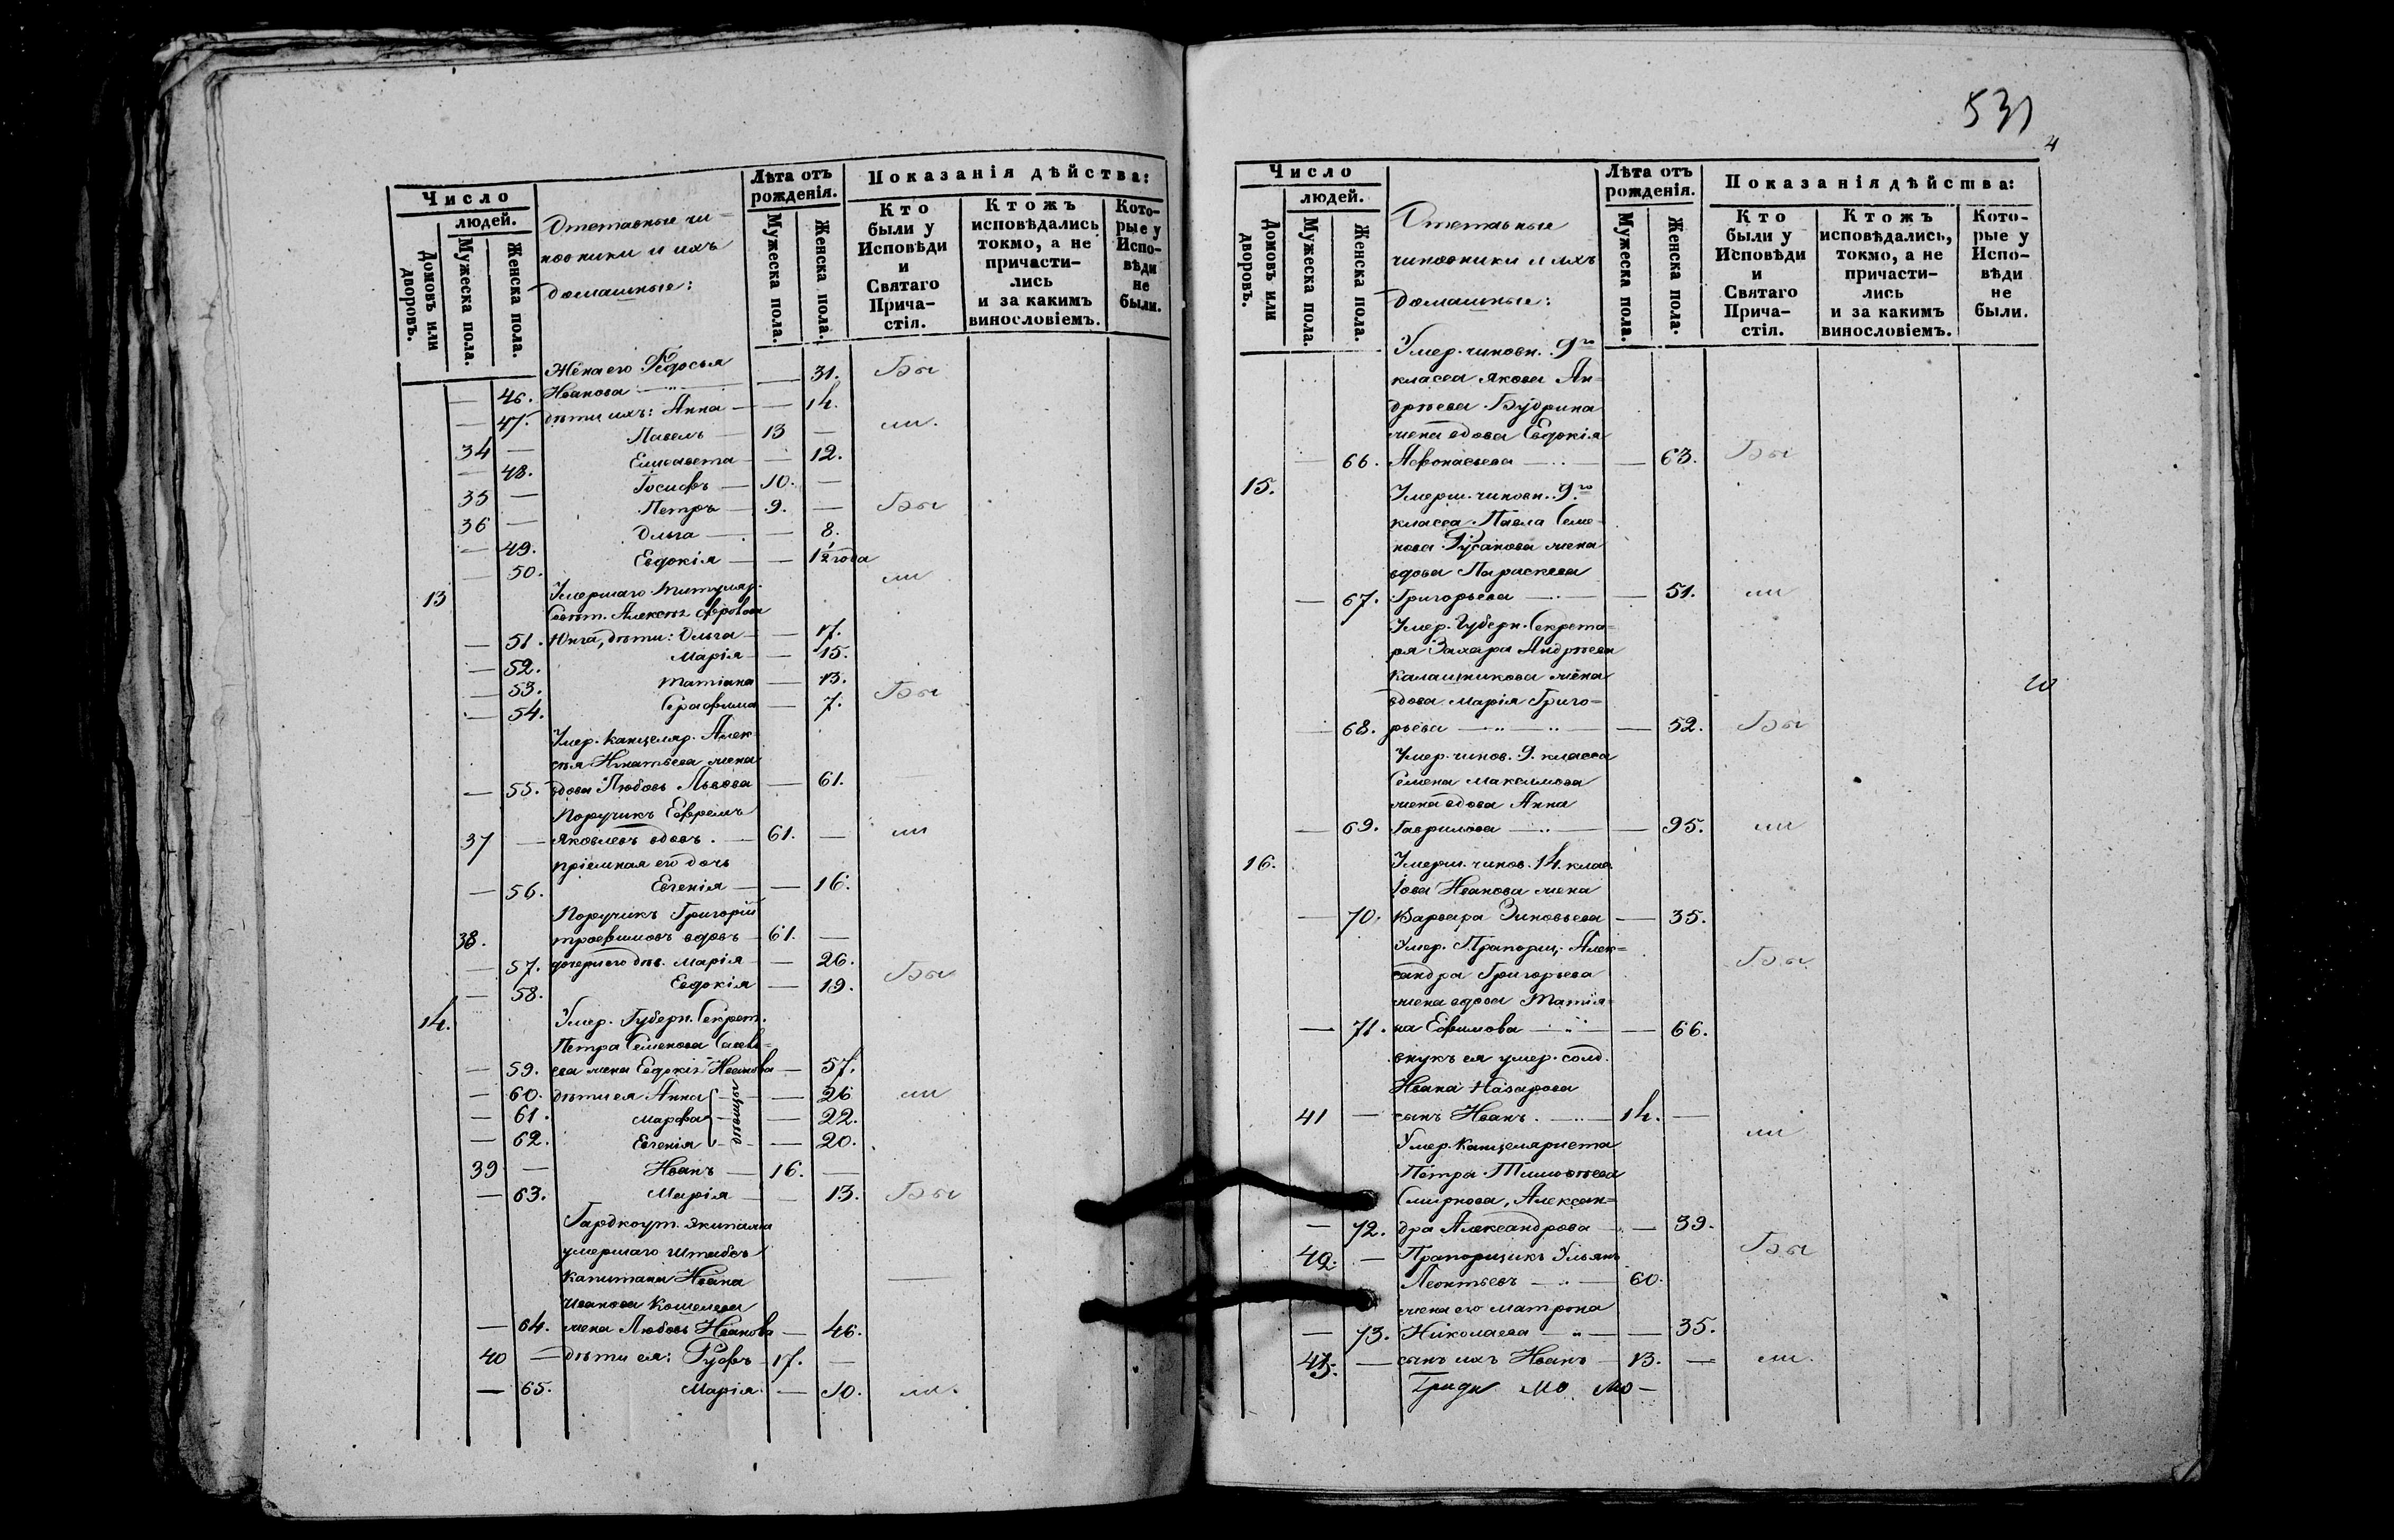 Число
людей.
Домовъ или дворовъ.
Мужеска пола.
Женска пола.
Отставные чи-
новники и ихъ
домашные:
Лѣта отъ
рожденія.
Мужеска пола.
Женска пола.
Показанія дѣйства:
Кто
были у
Исповѣди
и
Святаго
Прича-
стія.
Ктожъ
исповѣдались
токмо, а не
причасти-
лись
и за какимъ
винословіемъ.
Кото-
рые у
Испо-
вѣди
не
были.
Жена его Федосья
— 46. Иванова — — 31. Бы
— 47. дѣти ихъ: Анна — — 14.
34 — Павелъ — 13 — ли.
— 48. Елисавета — — 12.
35 — Іосифъ — 10. —
36 — Петръ — 9. — Бы
— 49. Ольга — — 8.
— 50. Евдокія — — 1½ года
13 Умершаго титуляр. ли
Совѣт. Алексѣя
— 51. дѣти: Ольга — — 17.
— 52. Марія — — 15.
— 53. Татіана — 13.
— 54. Серафима — 7. Бы
Умер. канцеляр. Алек-
сѣя Игнатьева жена
— 55. вдова Любовь Львова — 61. —
Поручикъ Ефремъ
37 — Яковлевъ вдовъ. — 61. — ли
пріемная его дочь
— 56. Евгенія — — 16.
Поручикъ Григорій
38. Трофимовъ вдовъ — 61. —
— 57. дочери его дѣв. Марія — — 26.
— 58. Евдокія — 19. Бы
14. Умер. Губерн. Секрет.
Петра Семенова
— 59. жена Евдокія Иванова — 57.
— 60. дѣти ея Анна — — 26 ли
— 61. Марфа — — 22.
— 62. Евгенія — — 20.
39 — Иванъ — 16. —
— 63. Марія — — 13. Бы
Гардкоут. экипажа
умершаго Штабсъ
Капитана Ивана
Иванова Кошелева —
— 64. жена Любовь Иванова — 46.
40 — дѣти ея: Руфъ — 17. —
— 65. Марія. — 10. ли.
531
4
Число
людей.
Домовъ или дворовъ.
Мужеска пола.
Женска пола.
Отставные
чиновники и ихъ
домашные:
Лѣта отъ
рожденія.
Мужеска пола.
Женска пола.
Показанія дѣйства:
Кто
были у
Исповѣди
и
Святаго
Прича-
стія.
Ктожъ
исповѣдались,
токмо, а не
причасти-
лись
и за какимъ
винословіемъ.
Кото-
рые у
Испо-
вѣди
не
были.
Умер. чиновн. 9го
класса Якова Ан-
дрѣева Будрина
жена вдова Евдокія
— 66. Афонасьева — — 63. Бы
15. Умерш. чиновн. 9го
класса Павла Семе-
нова Русанова жена
вдова Параскева
— 67. Григорьева — — 51. ли
Умер. Губерн. Секрета-
ря Захара Андрѣева
Калашникова жена
вдова Марія Григо-
— 68. рьева — — 52. Бы
Умер. чинов. 9. класса
Семена Максимова
жена вдова Анна
— 69. Гаврилова — — 95. ли
16. Умерш. чинов. 14. клас.
Іова Иванова жена
— 70. Варвара Зиновьева — 35.
Умер. Прапорщ. Алек-
сандра Григорьева Бы
жена вдова Татія-
— 71. на Ефимова — — 66.
внукъ ея умер. солд.
Ивана Назарова
41 — сынъ Иванъ. — 14. —
Умер. Канцеляриста ли
Петра Тимофѣева
Смирнова, Алексан-
— 72. дра Александрова — — 39.
42. — Прапорщикъ Ульянъ Бы
Леонтьевъ — 60.
жена его Матрона
— 73. Николаева — — 35.
43. — сынъ ихъ Иванъ — 13. — ли.